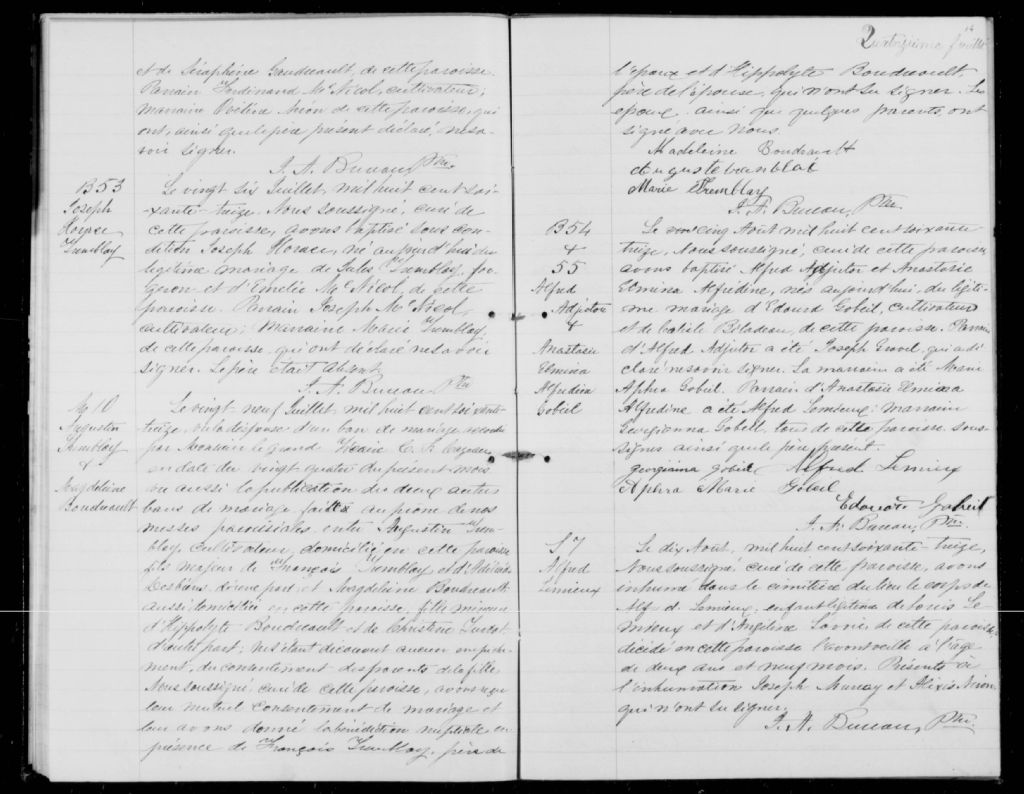 et de Séraphine Goudreault, de cette paroisse.
Parrain Ferdinand McNicol, cultivateur;
marraine de cette paroisse, qui
ont, ainsi que le père présent déclaré ne sa-
voir signer.
J. A. Bureau Ptre
B 53
Joseph
Horace
Tremblay
Le vingt six Juillet, mil huit cent soi-
xante-treize. Nous soussigné, curé de
cette paroisse, avons baptisé sous con-
dition Joseph Horace, né aujourd'hui du
légitime mariage de Jules Tremblay, for-
geron et d'Emélie McNicol, de cette
paroisse. Parrain Joseph McNicol,
cultivateur; Marraine Marie Tremblay,
de cette paroisse, qui ont déclaré ne savoir
signer. Le père était absent.
J. A. Bureau Ptre
M 10
Augustin
Tremblay
&
Magdeleine
Boudreault
Le vingt neuf Juillet, mil huit cent soixante
treize, vu la dispense d'un ban de mariage accordée
par Monsieur le Grand Vicaire C. F. Cazeau
en date du vingt quatre du présent mois
vu aussi la publication des deux autres
bans de mariage faites au prone de nos
messes paroissiales entre Augustin Trem-
blay, cultivateur, domicilié en cette paroisse
fils majeur de François Tremblay et d'Adélaïde
d'une part et Magdeleine Boudreault
aussi domiciliée en cette paroisse, fille mineure
d'Hippolyte Boudreault et de Christine
d'autre part; ne s'étant découvert aucun empêche-
ment, du consentement des parents de la fille
Nous soussigné, curé de cette paroisse, avons reçu
leur mutuel consentement de mariage et
leur avons donné la bénédiction nuptiale en
présence de François Tremblay, père de
l'époux et d'Hippolyte Boudreault,
père de l'épouse, qui n'ont su signer. Les
époux ainsi que quelques parents, ont
signé avec Nous.
Madeleine Boudrault
Auguste tranblai
Marie Tremblay
J. A. Bureau, Ptre
B 54
&
55
Alfred
Adjutor
&
Anastasie
Elmina
Alfredine
Gobeil
Le cinq Aout mil huit cent soixante
treize, Nous soussigné, curé de cette paroisse,
avons baptisé Alfred Adjutor et Anastasie
Elmina Alfredine, nés aujourd'hui, du légiti-
me mariage d'Edouard Gobeil, cultivateur
et de de cette paroisse. Parrain
d'Alfred Adjutor a été Joseph Gravel, qui a dé-
claré ne savoir signer. La marraine a été Marie
Aphra Gobeil. Parrain d'Anastasie Elmina
Alfredine a été Alfred Lemieux; marraine
Georgianna Gobeil, tous de cette paroisse, sous-
signés ainsi que le père présent.
georgianna gobeil Alfred Lemieux
Aphra Marie Gobeil
Edouard Gobeil
J. A. Bureau, Ptre
S 7
Alfred
Lemieux
Le dix Aout, mil huit cent soixante-treize,
Nous soussigné, curé de cette paroisse, avons
inhumé dans le cimetière du lieu le corps de
Alfred Lemieux, enfant légitime de Louis Le-
mieux et d'Angelina Savoie, de cette paroisse,
décédé en cette paroisse l'avant veille à l'age
de deux ans et neuf mois. Présents à
l'inhumation Joseph Murray et Alexis
qui n'ont su signer.
J. A. Bureau, Ptre